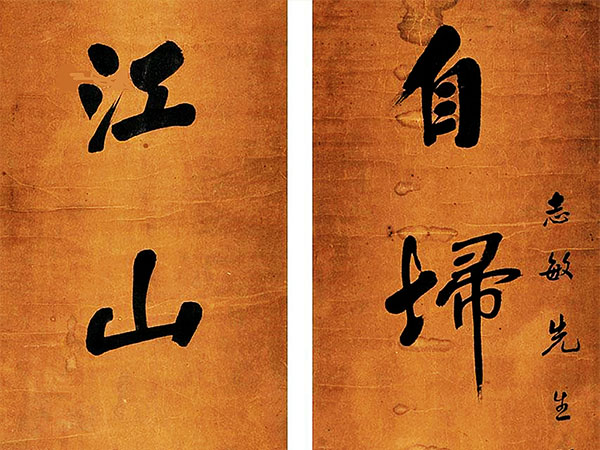 志敏先生
自埽
江山